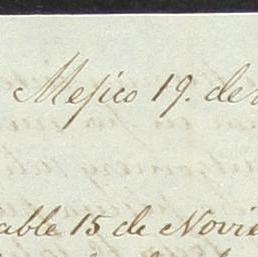 Mejico 19. de
able 15 de Novie